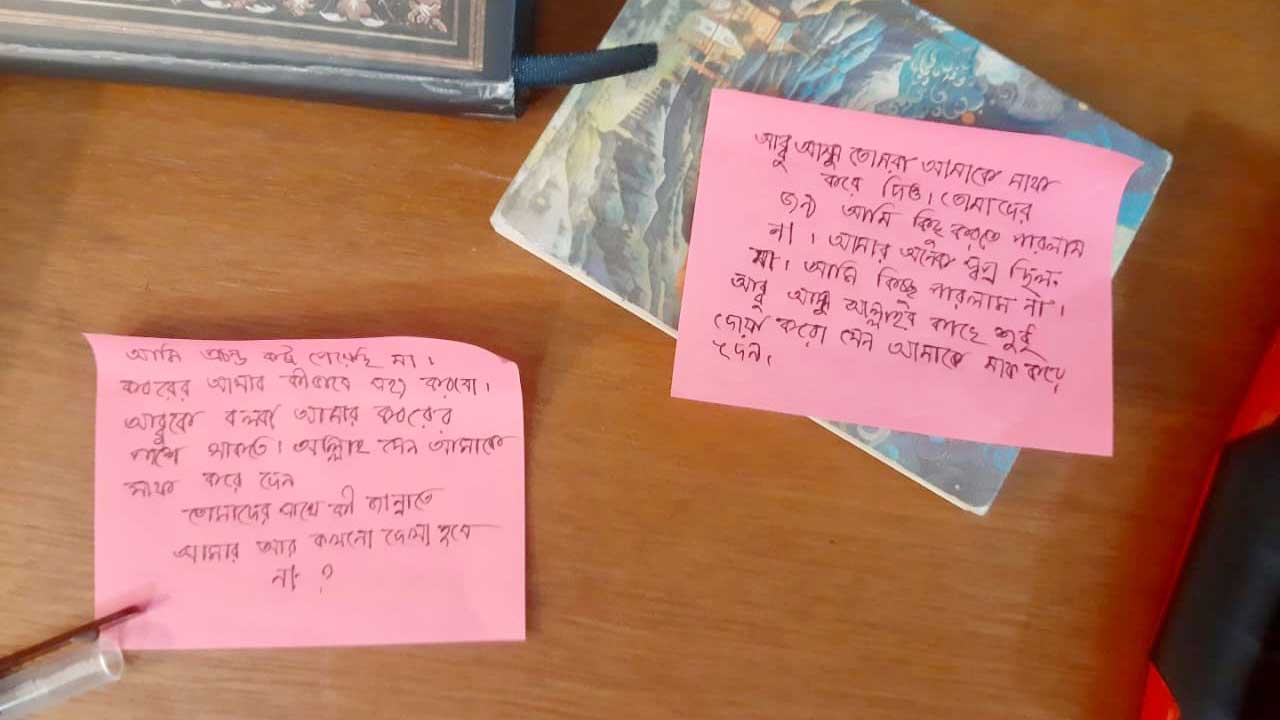 আমি প্রচন্ড কষ্ট পেয়েছি মা।
কবরের আমার কীভাবে সহ্য করবো।
আব্বুকে বলবা আমার কবরের
পাশে থাকতে। আল্লাহ যেন আমাকে
মাফ করে দেন
তোমাদের সাথে কী জান্নাতে
আমার আর কখনো দেখা হবে
না ?
আব্বু আম্মু তোমরা আমাকে মাফ
করে দিও। তোমাদের
জন্য আমি কিছু করতে পারলাম
না। আমার অনেক স্বপ্ন ছিল
মা। আমি কিচ্ছু পারলাম না।
আব্বু আম্মু আল্লাহর কাছে শুধু
দোয়া করো যেন আমাকে মাফ করে
দেন।